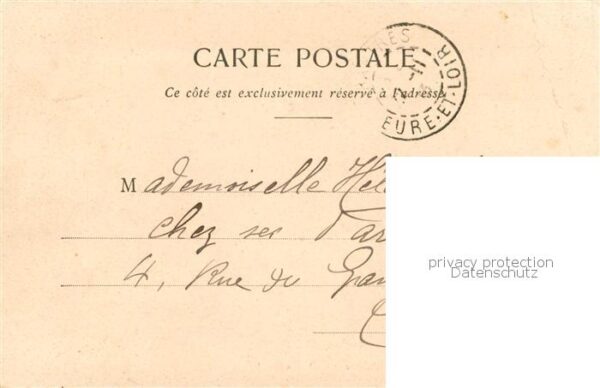 CARTE POSTALE
Ce côté est exclusivement réservé à l'adresse
EURE-ET-LOIR
Mademoiselle Hél
chez ses Par
4, Rue du Gran
privacy protection
Datenschutz